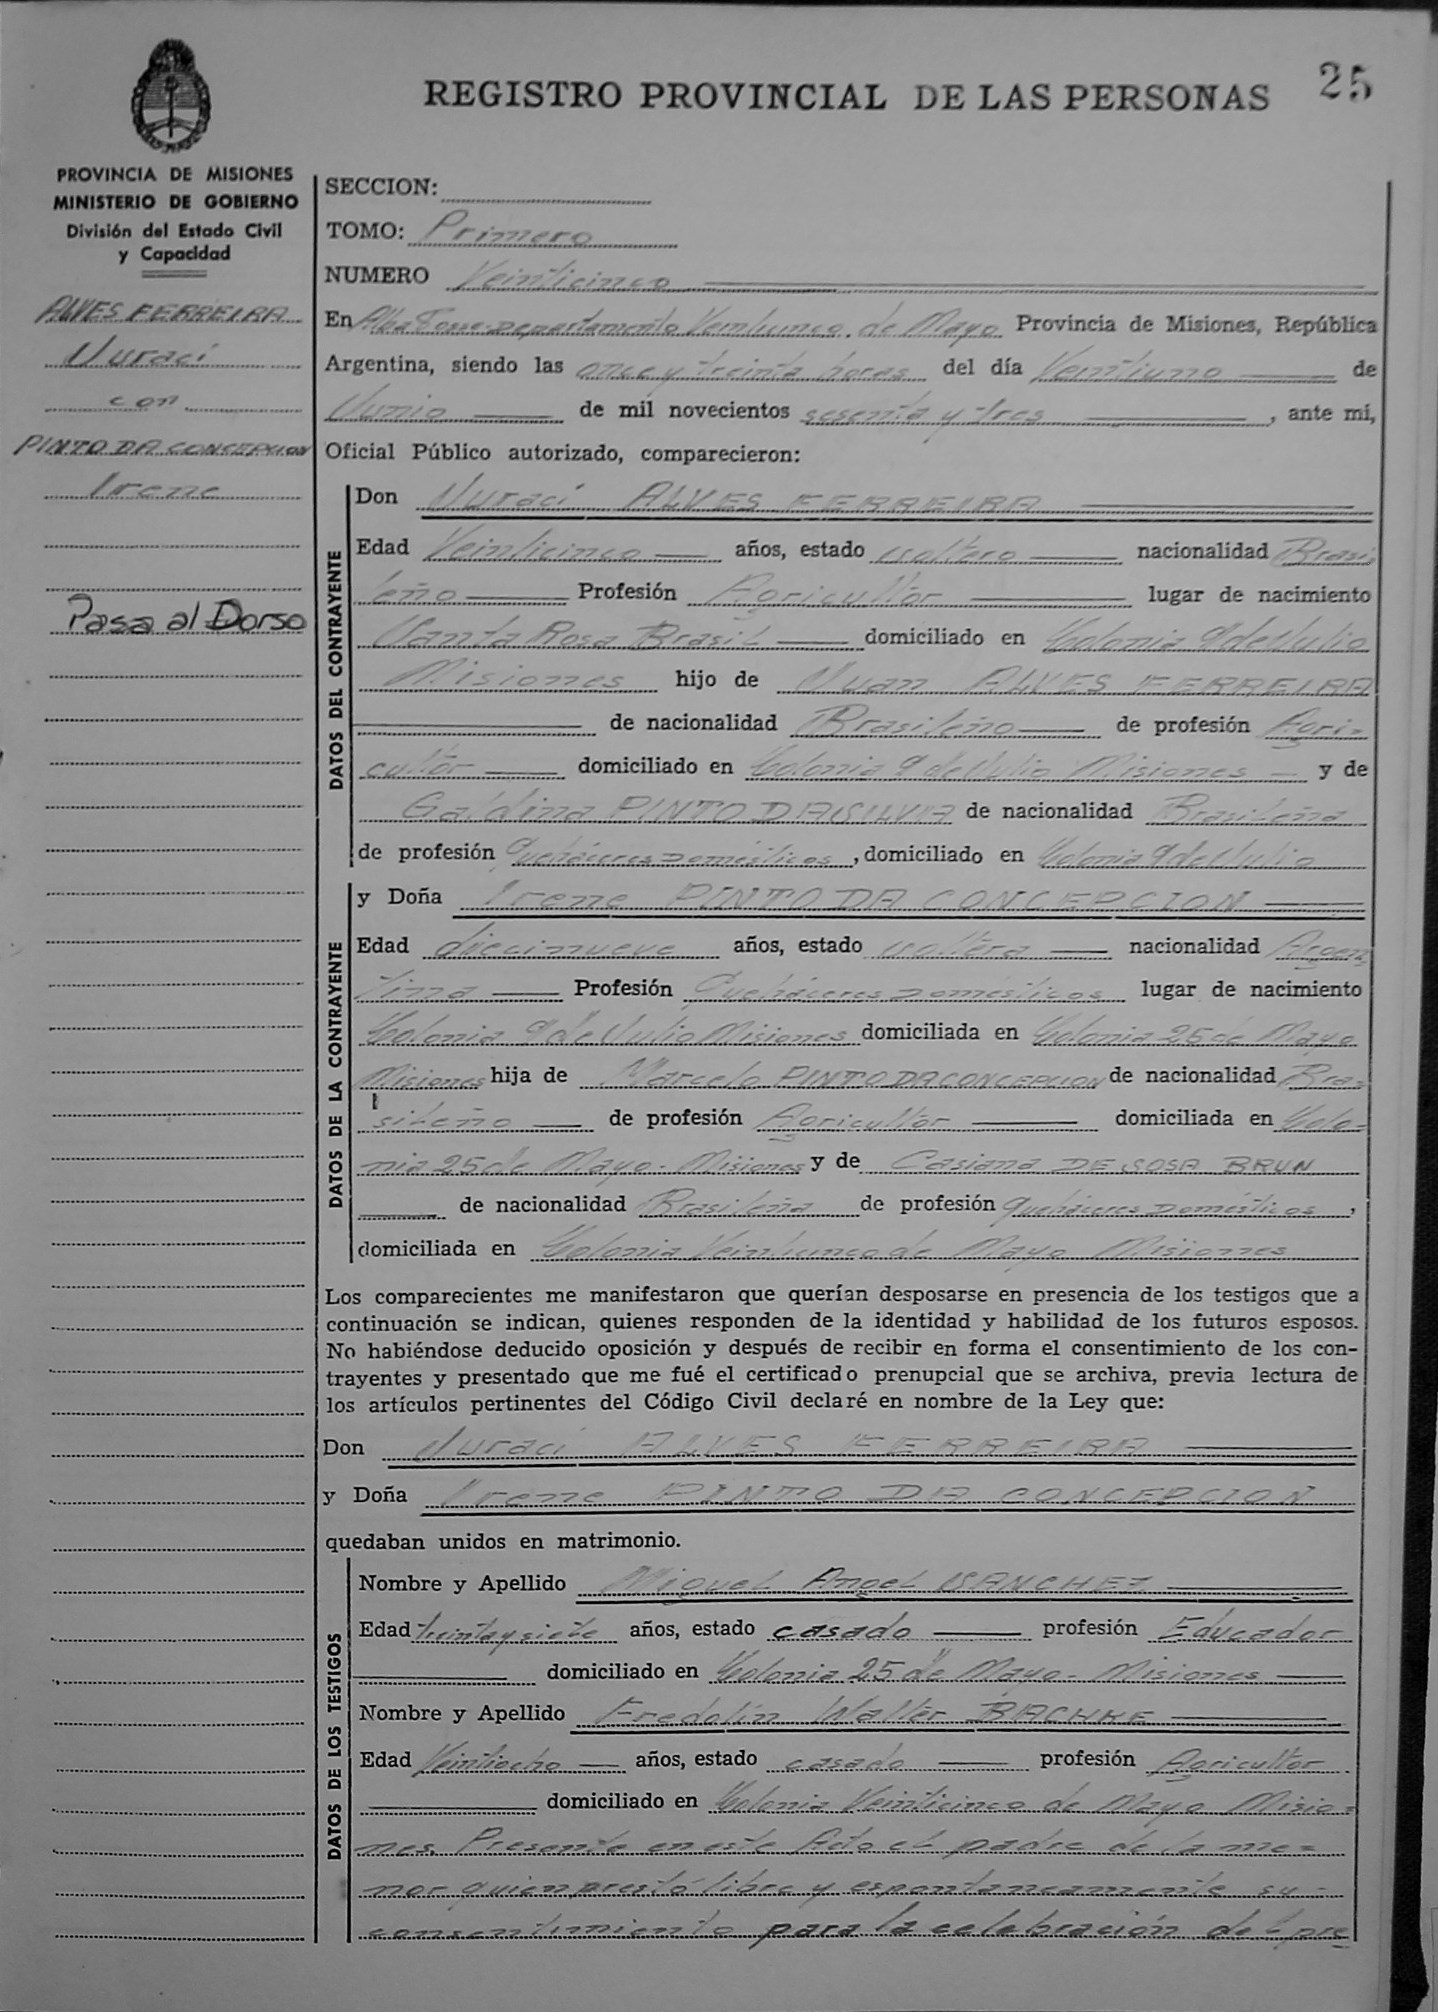 REGISTRO PROVINCIAL DE LAS PERSONAS 25
PROVINCIA DE MISIONES
MINISTERIO DE GOBIERNO
División del Estado Civil
y Capacidad
ALVES FERREIRA
Juraci
con
PINTO DA CONCEPCION
Irene
Pasa al Dorso
SECCION:
TOMO: Primero
NUMERO Veinticinco
En Alba Posse-Departamento Veinticinco de Mayo Provincia de Misiones, República
Argentina, siendo las once y treinta horas del día Veintiuno de
Junio de mil novecientos sesenta y tres, ante mi,
Oficial Público autorizado, comparecieron:
DATOS DEL CONTRAYENTE
Don Juraci ALVES FERREIRA
Edad Veinticinco años, estado soltero nacionalidad Brasi
leño Profesión Agricultor lugar de nacimiento
Santa Rosa Brasil domiciliado en Colonia 9 de Julio
Misiones hijo de Juan ALVES FERREIRA
de nacionalidad Brasileño de profesión Agri-
cultor domiciliado en Colonia 9 de Julio Misiones y de
Galdina PINTO DA SILVIA de nacionalidad Brasileña
de profesión Quehaceres Domésticos, domiciliado en Colonia 9 de Julio
DATOS DE LA CONTRAYENTE
y Doña Irene PINTO DA CONCEPCION
Edad diecinueve años, estado soltera nacionalidad Argen
tina Profesión Quehaceres Domésticos lugar de nacimiento
Colonia 9 de Julio Misiones domiciliada en Colonia 25 de Mayo
Misiones hija de Marcelo PINTO DA CONCEPCION de nacionalidad Bra-
sileño de profesión Agricultor domiciliada en Colo-
nia 25 de Mayo - Misiones y de Casiana DE SOSA BRUN
de nacionalidad Brasileña de profesión Quehaceres Domésticos,
domiciliada en Colonia Veinticinco de Mayo Misiones
Los comparecientes me manifestaron que querían desposarse en presencia de los testigos que a
continuación se indican, quienes responden de la identidad y habilidad de los futuros esposos.
No habiéndose deducido oposición y después de recibir en forma el consentimiento de los con-
trayentes y presentado que me fué el certificado prenupcial que se archiva, previa lectura de
los artículos pertinentes del Código Civil declaré en nombre de la Ley que:
Don Juraci ALVES FERREIRA
y Doña Irene PINTO DA CONCEPCION
quedaban unidos en matrimonio.
DATOS DE LOS TESTIGOS
Nombre y Apellido Miguel Angel SANCHEZ
Edad treinta y siete años, estado casado profesión Educador
domiciliado en Colonia 25 de Mayo - Misiones
Nombre y Apellido Fredolín Walter BACHKE
Edad Veintiocho años, estado casado profesión Agricultor
domiciliado en Colonia Veinticinco de Mayo Misio-
nes. Presente en este Acto el padre de la me-
nor quien prestó libre y espontaneamente su
consentimiento para la celebración del pre